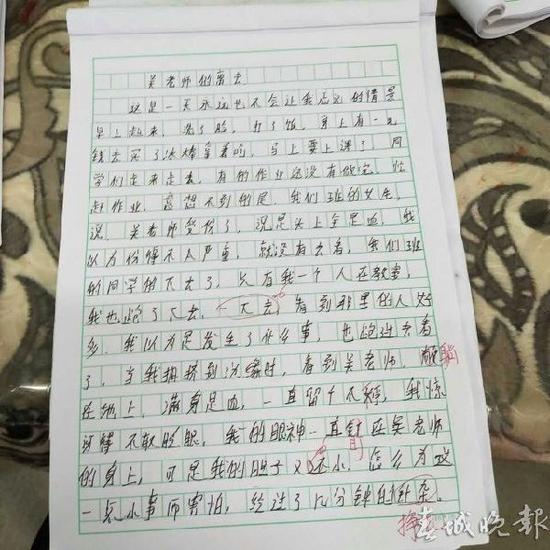 吴老师的离去
这是一天永远也不会让我忘记的情景
早上起来，洗了脸，打了饭，身上有一元
钱去买了冰棒拿着吃，马上要上课了，同
学们走来走去，有的作业还没有做完，忙
赶作业，意想不到的是，我们班的女生
说，吴老师受伤了，说是头上全是血，我
以为伤得不太严重，就没有去看，我们班
的同学的下去了，只有我一个人在教室，
我也跑了下去，下去，看到那里的人好
多，我以为是发生了什么事，也跑进去看
了，当我拥挤到边缘时，看到吴老师，躺
在地上，满身是血，一直留个不，我惊
讶得不敢眨眼，我的眼神一直盯在吴老师
的身上，可是我的胆子又还小，怎么为这
一点小事而害怕，经过了几分钟的
春城晚报